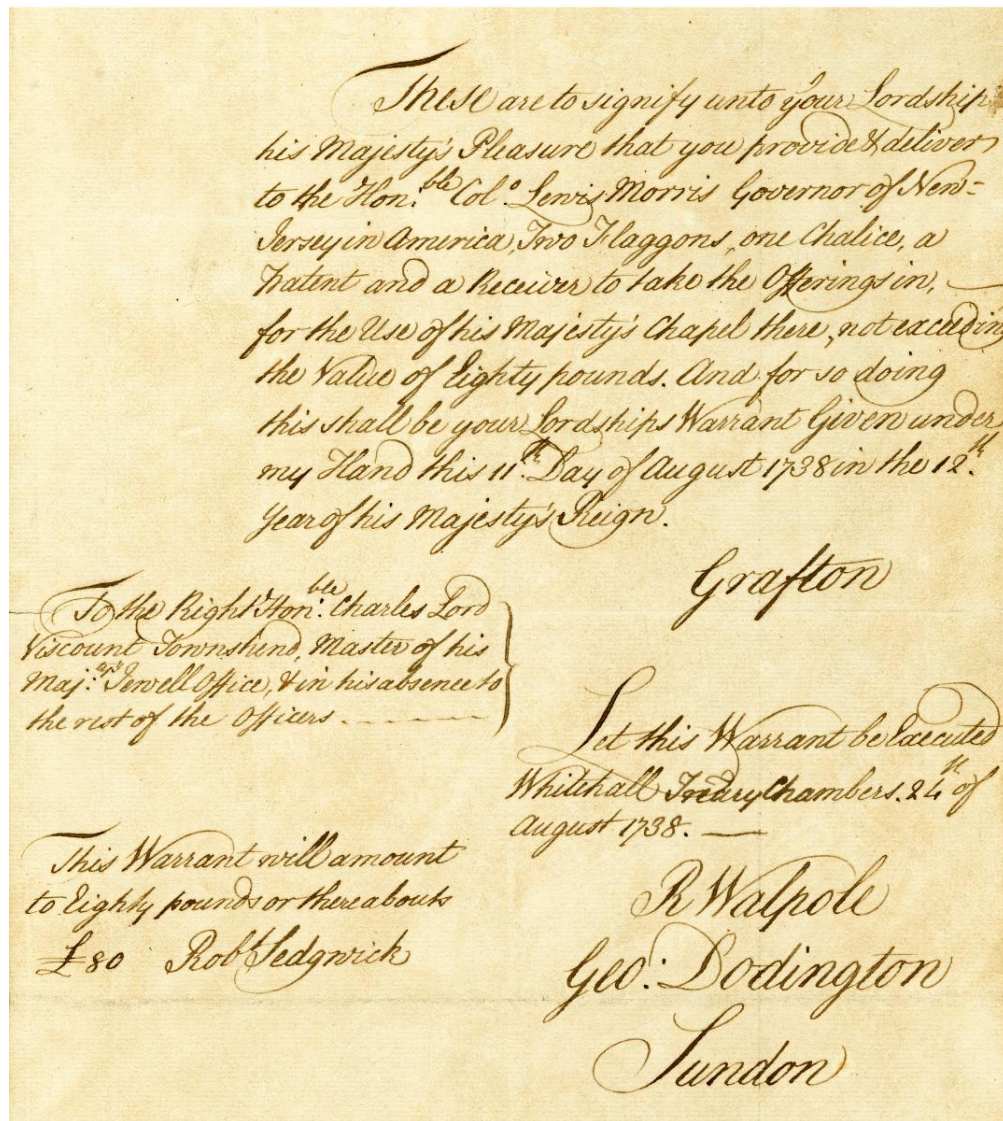 These are to signify unto your Lordship
his Majesty's Pleasure that you provide & deliver
to the Hon:ble Col:o Lewis Morris Governor of New=
Jersey in America, Two Flaggons, one Chalice, a
Patent and a Receiver to take the Offerings in,
for the Use of his Majesty's Chapel there, not exceeding
the Value of Eighty pounds. And for so doing
this shall be your Lordships Warrant Given under
my Hand this 11th. Day of August 1738 in the 12th.
Year of his Majesty's Reign.
Grafton
To the Right Hon:ble Charles Lord
Viscount Townshend, Master of his
Maj:ty's Jewell Office, & in his absence to
the rest of the Officers
Let this Warrant be Executed
Whitehall Treãry Chambers. 24th of
August 1738.
This Warrant will amount
to Eighty pounds or thereabouts
£80 Robt Sedgwick
R Walpole
Geo: Dodington
Sundon